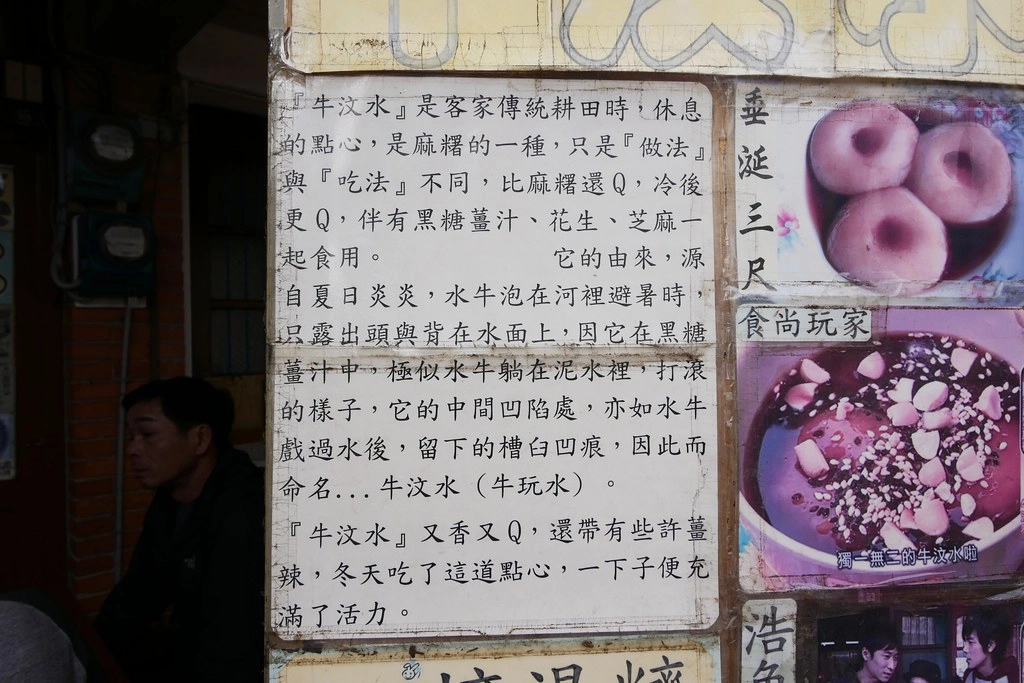 『牛汶水』是客家傳統耕田時，休息
的點心，是麻糬的一種，只是『做法』
與『吃法』不同，比麻糬還Q，冷後
更Q，伴有黑糖薑汁、花生、芝麻一
起食用。 它的由來，源
自夏日炎炎，水牛泡在河裡避暑時，
只露出頭與背在水面上，因它在黑糖
薑汁中，極似水牛躺在泥水裡，打滾
的樣子，它的中間凹陷處，亦如水牛
戲過水後，留下的槽臼凹痕，因此而
命名...牛汶水（牛玩水）。
『牛汶水』又香又Q，還帶有些許薑
辣，冬天吃了這道點心，一下子便充
滿了活力。
垂涎三尺
食尚玩家
獨一無二的牛汶水啦
浩